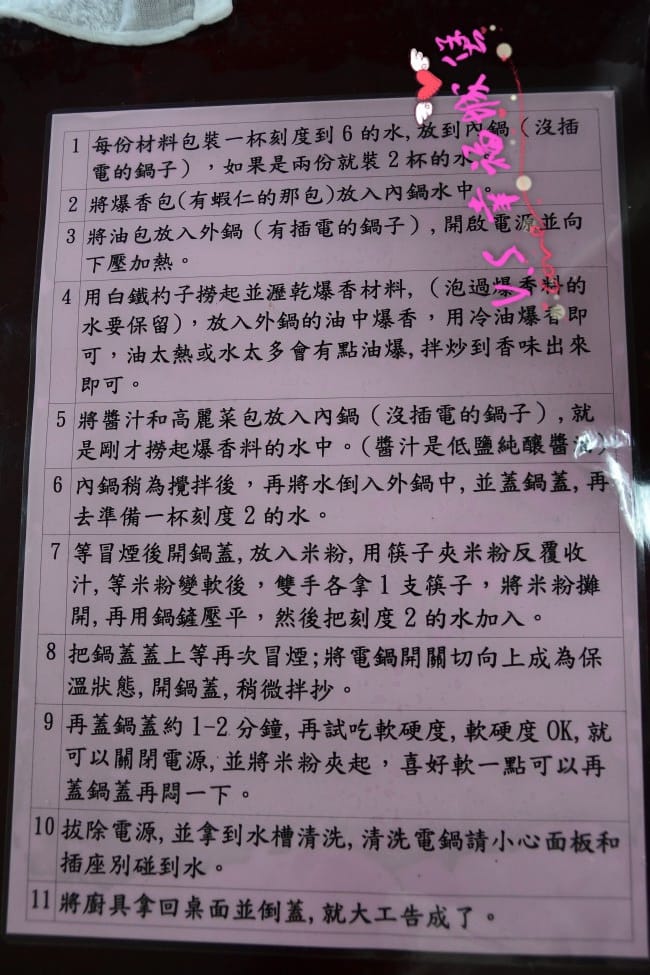 1 每份材料包裝一杯刻度到6的水,放到內鍋(沒插
電的鍋子),如果是兩份就裝2杯的水。
2 將爆香包(有蝦仁的那包)放入內鍋水中。
3 將油包放入外鍋(有插電的鍋子),開啟電源並向
下壓加熱。
4 用白鐵杓子撈起並瀝乾爆香材料,(泡過爆香料的
水要保留),放入外鍋的油中爆香,用冷油爆香即
可,油太熱或水太多會有點油爆,拌炒到香味出來
即可。
5 將醬汁和高麗菜包放入內鍋(沒插電的鍋子),就
是剛才撈起爆香料的水中。(醬汁是低鹽純釀醬
6 內鍋稍為攪拌後,再將水倒入外鍋中,並蓋鍋蓋,再
去準備一杯刻度2的水。
7 等冒煙後開鍋蓋,放入米粉,用筷子夾米粉反覆收
汁,等米粉變軟後,雙手各拿1支筷子,將米粉攤
開,再用鍋鏟壓平,然後把刻度2的水加入。
8 把鍋蓋蓋上等再次冒煙;將電鍋開關切向上成為保
溫狀態,開鍋蓋,稍微拌抄。
9 再蓋鍋蓋約1-2分鐘,再試吃軟硬度,軟硬度OK,就
可以關閉電源,並將米粉夾起,喜好軟一點可以再
蓋鍋蓋再悶一下。
10 拔除電源,並拿到水槽清洗,清洗電鍋請小心面板和
插座別碰到水。
11 將廚具拿回桌面並倒蓋,就大工告成了。